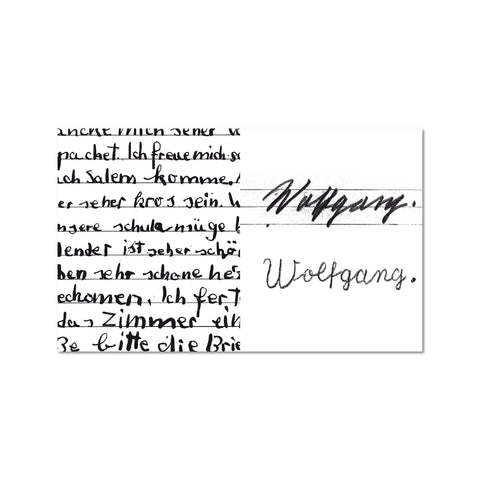 mich seher
pachet. Ich freue mich
Salem komme.
er seher kros sein.
nsere schule müge
lender ist seher schö
ben sehr schone
eckomen. Ich
das Zimmer ein
ße bitte die Brie
Wolfgang.
Wolfgang.